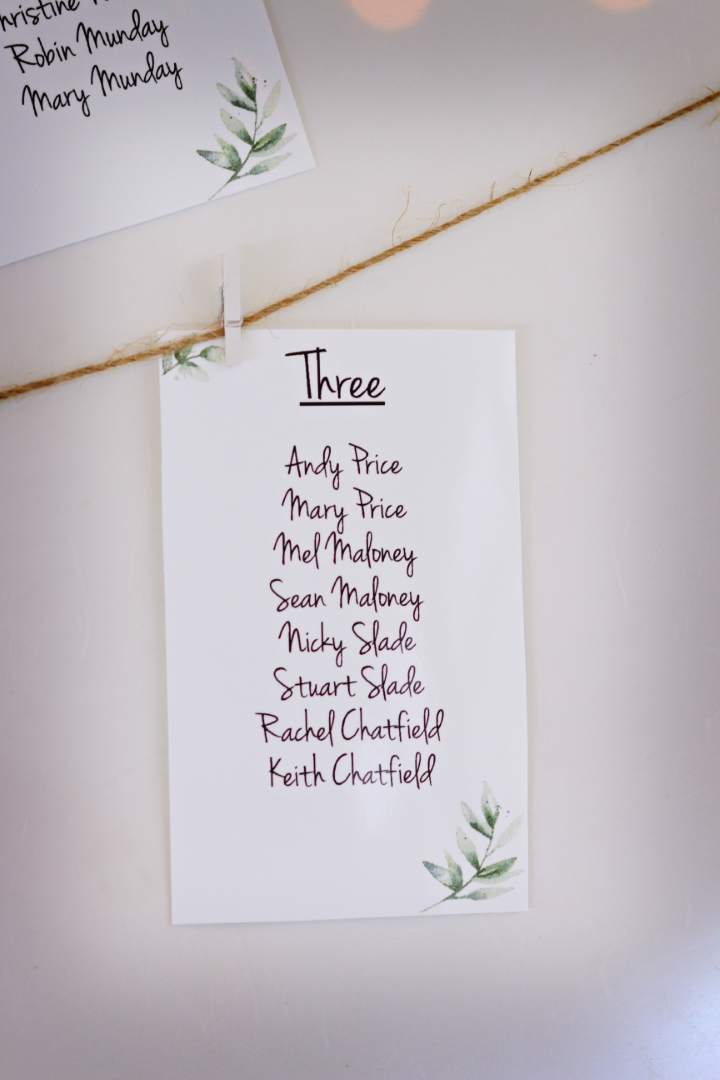 Robin Munday
Mary Munday
Three
Andy Price
Mary Price
Mel Maloney
Sean Maloney
Nicky Slade
Stuart Slade
Rachel Chatfield
Keith Chatfield